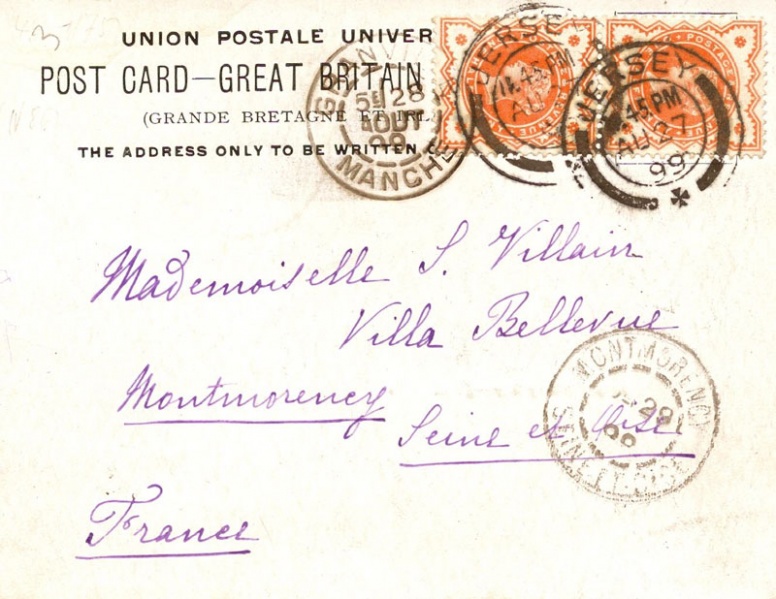 UNION POSTALE UNIVER
POST CARD—GREAT BRITAIN
(GRANDE BRETAGNE ET IRL
THE ADDRESS ONLY TO BE WRITTEN
GRANVILLE
5E 28
AOUT
99
MANCHE
JERSEY
45 PM
AU
JERSEY
45 PM
AU 27
99
POSTAGE
Mademoiselle S. Villain
Villa Bellevue
Montmorency
Seine et Oise
France
MONTMORENCY
28
99
SEINE-ET-OISE